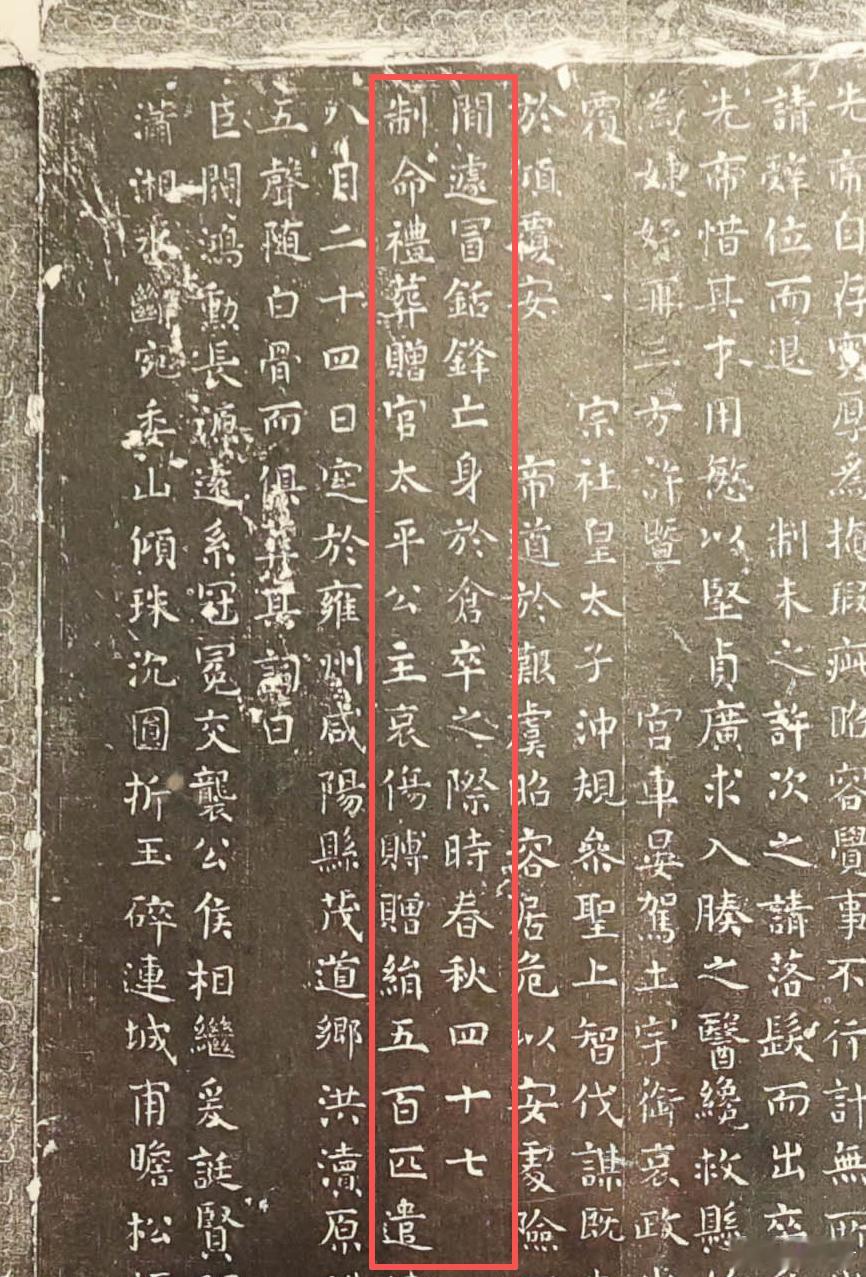 先帝自存寬厚爲掩瑕疵昭容覺事不行計無所
請辭位而退 制未之許次之請落髮而出卒
先帝惜其才用慜以堅貞廣求入腠之醫纔救懸
爲婕妤再三方許暨 宮車晏駕土宇銜哀政
覆 宗社皇太子沖規參聖上智伐謀既
於傾覆安 帝道於艱虞昭容居危以安處險
間遽冒銛鋒亡身於倉卒之際時春秋四十七
制命禮葬贈官太平公主哀傷賻贈絹五百匹遣
八月二十四日窆於雍州咸陽縣茂道鄉洪瀆原
五聲隨白骨而俱葬其詞曰
臣閥鴻勳長源遠系冠冕交襲公侯相繼爰誕賢
瀟湘水斷宛委山傾珠沈圓折玉碎連城甫瞻松